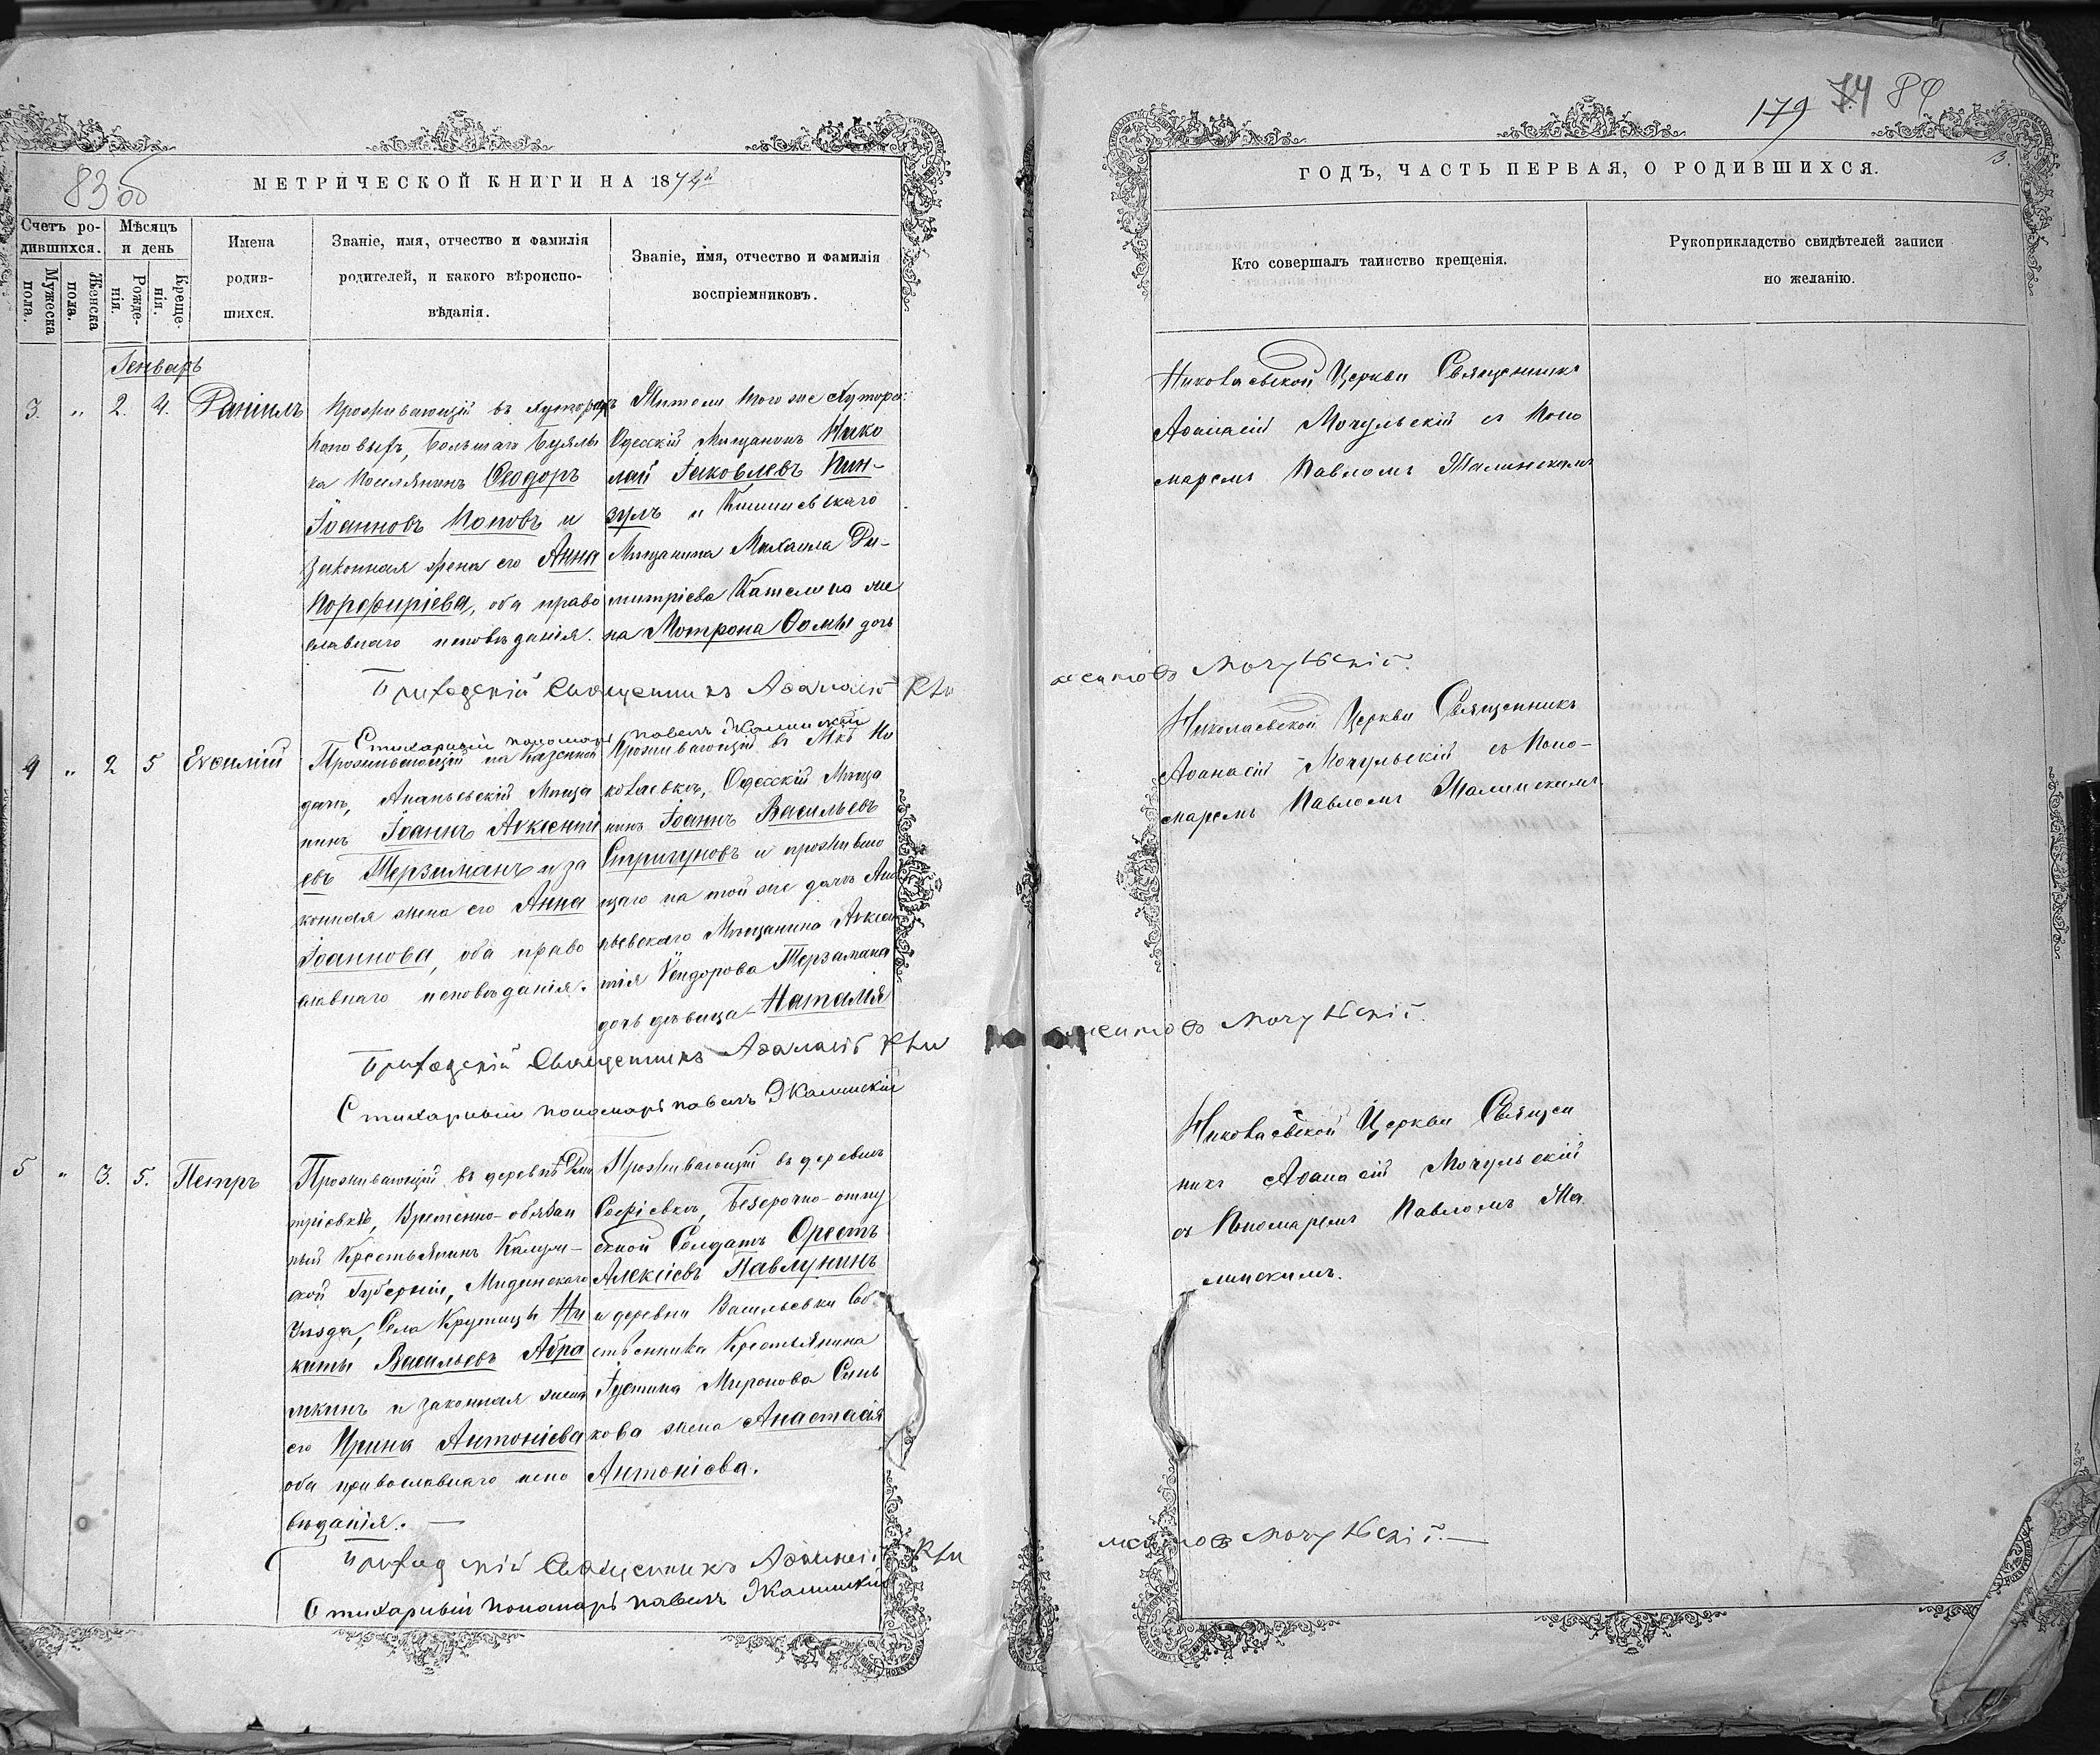 83 об
МЕТРИЧЕСКОЙ КНИГИ НА 1874й
Счетъ ро-
дившихся.
Мѣсяцъ
и день
Мужеска
пола.
Женска
пола.
Рожде-
нія.
Креще-
нія.
Имена
родив-
шихся.
Званіе, имя, отчество и фамилія
родителей, и какого вѣроиспо-
вѣданія.
Званіе, имя, отчество и фамилія
воспріемниковъ.
Генварь
3. „ 2. 4. Даніилъ
Проживающій въ Хуторахъ
Поповыхъ, Большаго Буялы
ка Поселянинъ Ѳеодоръ
Іоанновъ Поповъ и
законная жена его Анна
Порфиріева, оба право
славнаго исповѣданія.
Жители того же Хутора:
Одесскій Мѣщанинъ Нико
лай Іаковлевъ Пин-
зулъ и Кишиневскаго
Мѣщанина Михаила Ди-
митріева
на Мотрона Ѳомы дочь
Приходскій Священникъ Аѳанасій
Стихарный пономарь павелъ Жалинскій
4 „ 2 5 Евсимій
Проживающій на Казенной
дачѣ, Ананьевскій Мѣща
нинъ Іоаннъ Авксентi
евъ Терзиманъ и за
конная жена его Анна
Іоаннова, оба право
славнаго исповѣданія.
Проживающій въ Мѣс Ни
колаевкѣ, Одесскій Мѣща
нинъ Іоаннъ Васильевъ
Стригуновъ и проживаю
щаго на той же дачѣ Ана
ньевскаго Мѣщанина Авксен
тія Ѳеодорова Терзимана
дочь дѣвица Наталія
Приходскій Священникъ Аѳанасій
Стихарный пономарь павелъ Жалинскій
5 „ 3. 5. Петръ
Проживающій въ деревнѣ Дми
тріевкѣ, Временно-обязан
ный Крестьянинъ Калуж-
ской Губерніи, Мидинскаго
Уѣзда, Села Крутицы Ни
киты Васильевъ Абра
мкинъ и законная жена
его Ирина Антоніева
оба православнаго испо
вѣданія. —
Проживающій въ деревнѣ
Софіевкѣ, Безсрочно-отпу
скной Солдатъ Орестъ
Алексіевъ Павлунинъ
и деревни Васильевки Соб
ственника Крестьянина
Іустина Миронова Сынь
кова жена Анастасія
Антоніева.
Приходскій Священникъ Аѳанасій
Стихарный пономарь павелъ Жалинскій
179 74 84
3.
ГОДЪ, ЧАСТЬ ПЕРВАЯ, О РОДИВШИХСЯ.
Кто совершалъ таинство крещенія.
Рукоприкладство свидѣтелей записи
по желанію.
Николаевской Церкви Священникъ
Аѳанасій Мочульскій съ Поно
маремъ Павломъ Жалинскимъ
Мочульскій.
Николаевской Церкви Священникъ
Аѳанасій Мочульскій съ Поно-
маремъ Павломъ Жалинскимъ.
Мочульскій.
Николаевской Церкви Священ
никъ Аѳанасій Мочульскій
съ Пономаремъ Павломъ Жа
линскимъ.
Мочульскій. —